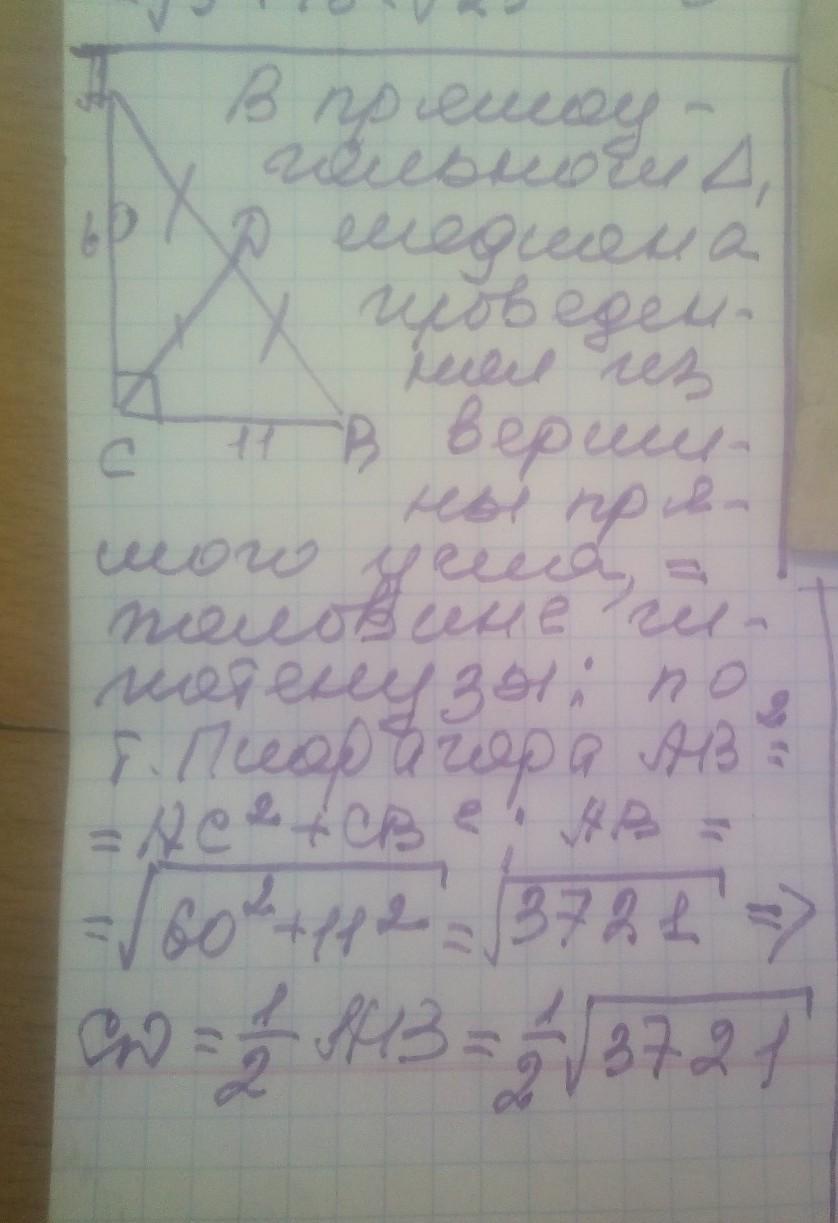 A
В прямоу-
гольном Δ,
60
D
медиана
проведен-
ная из
C
11
B
верши-
ны пря-
мого угла, =
половине ги-
потенузы; по
т. Пифагора AB² =
= AC² + CB²; AB =
= √60² + 11² = √3721 =>
CD = 1/2 AB = 1/2 √3721